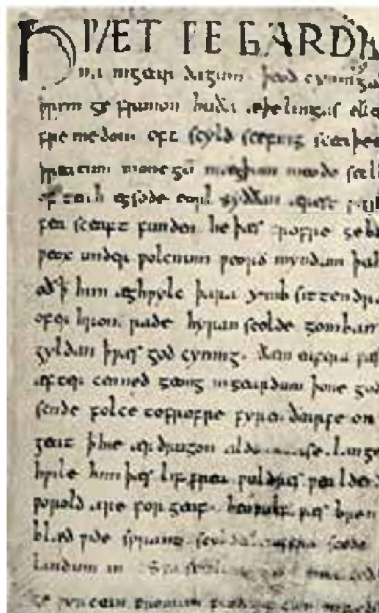 HǷÆT ǷE GARDE
na ingear dagum. þeod cyninga
þrym ge frunon huða æþelingas elle
fremedon. oft scyld scefing sceaþe
þreatum monegū mægþum meodo setl
of teah egsode eorl syððan ærest
fea sceaft funden he þæs frofre geb
ƿeox under ƿolcnum ƿeorð myndum þah
oð ꝥ him æghƿylc þara ymb sittendra
ofer hron rade hyran scolde gomban
gyldan ꝥ ƿæs god cyning. ðæm eafera ƿæs
æfter cenned geong ingeardum þone god
sende folce tofrofre fyren ðearfe on
geat ꝥ hie ær drugon aldor ase. lange
hƿile him þæs lif frea ƿuldres ƿealdend
ƿorold are for geaf. beoƿulf ƿæs breme
blæd ƿide sprang scyldes eafera scede
landum in